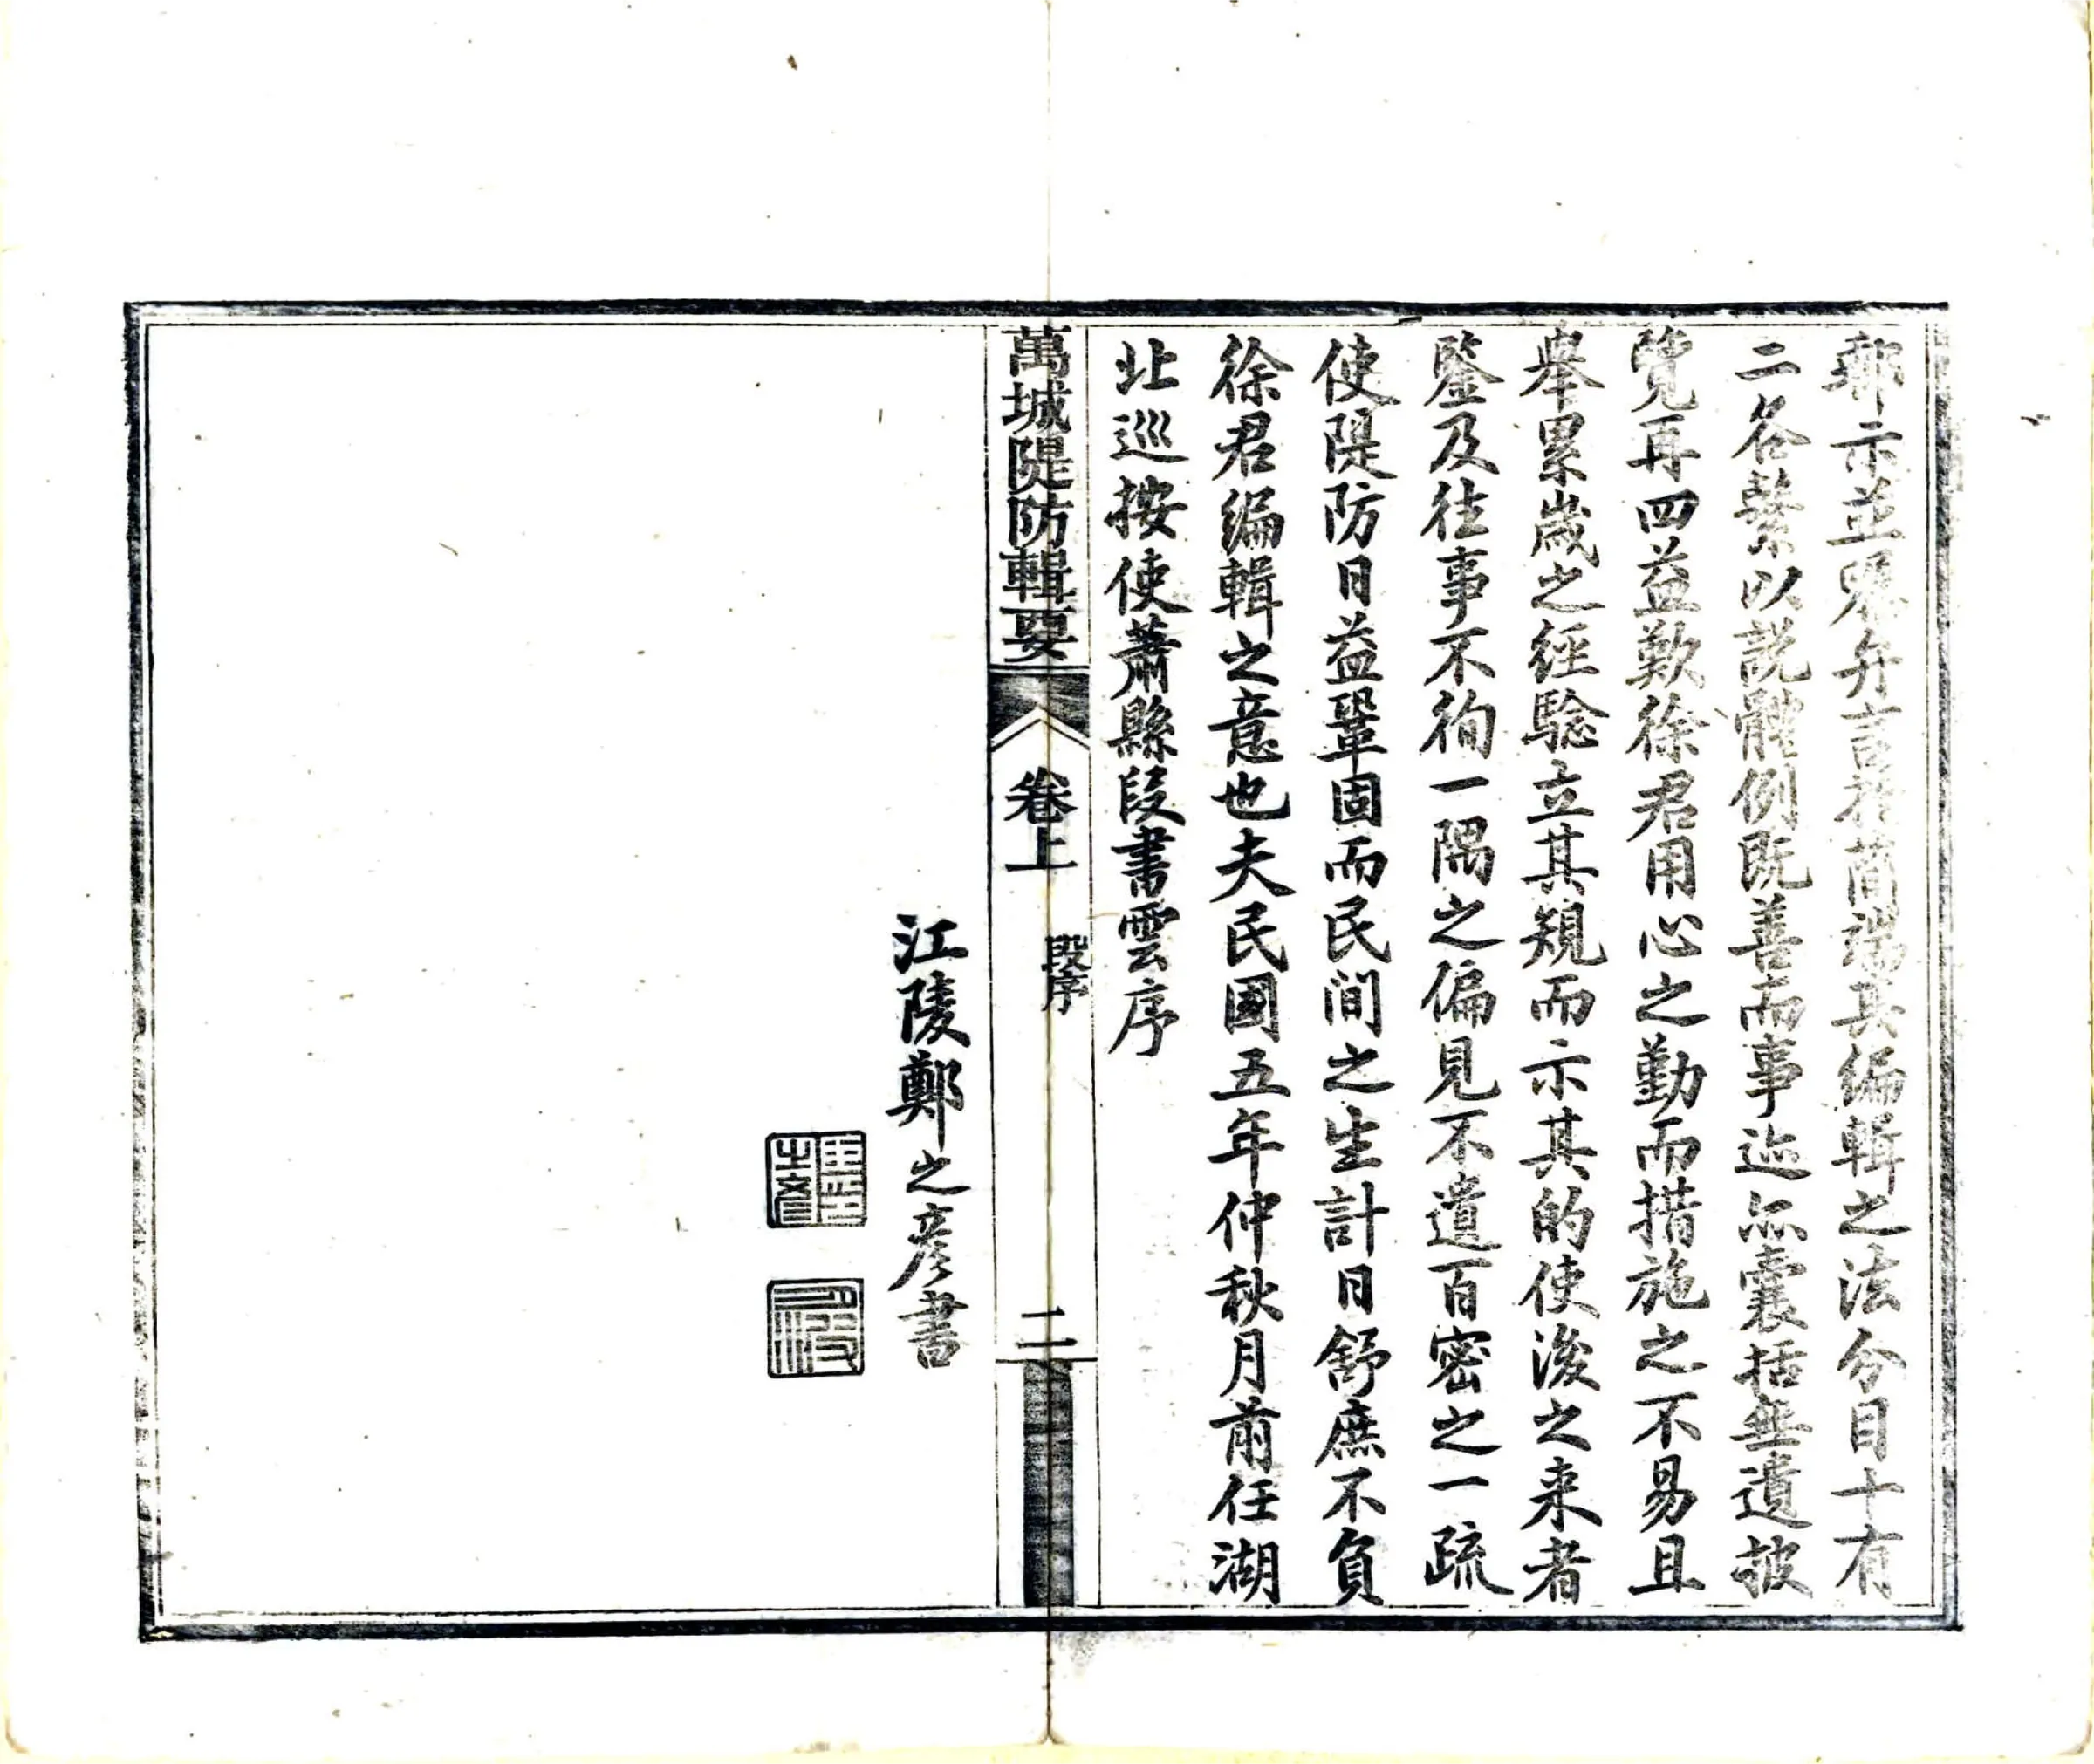 郵示並畀弁言於簡端其編輯之法分目十有
二各繫以説體例既善而事迹亦囊括無遺披
覽再四益歎徐君用心之勤而措施之不易且
舉累歲之經驗立其規而示其的使後之来者
鑒及往事不徇一隅之偏見不遺百密之一疏
使隄防日益鞏固而民間之生計日舒庶不負
徐君編輯之意也夫民國五年仲秋月前任湖
北巡按使蕭縣段書雲序
萬城隄防輯要
卷上
段序
二
江陵鄭之彦書